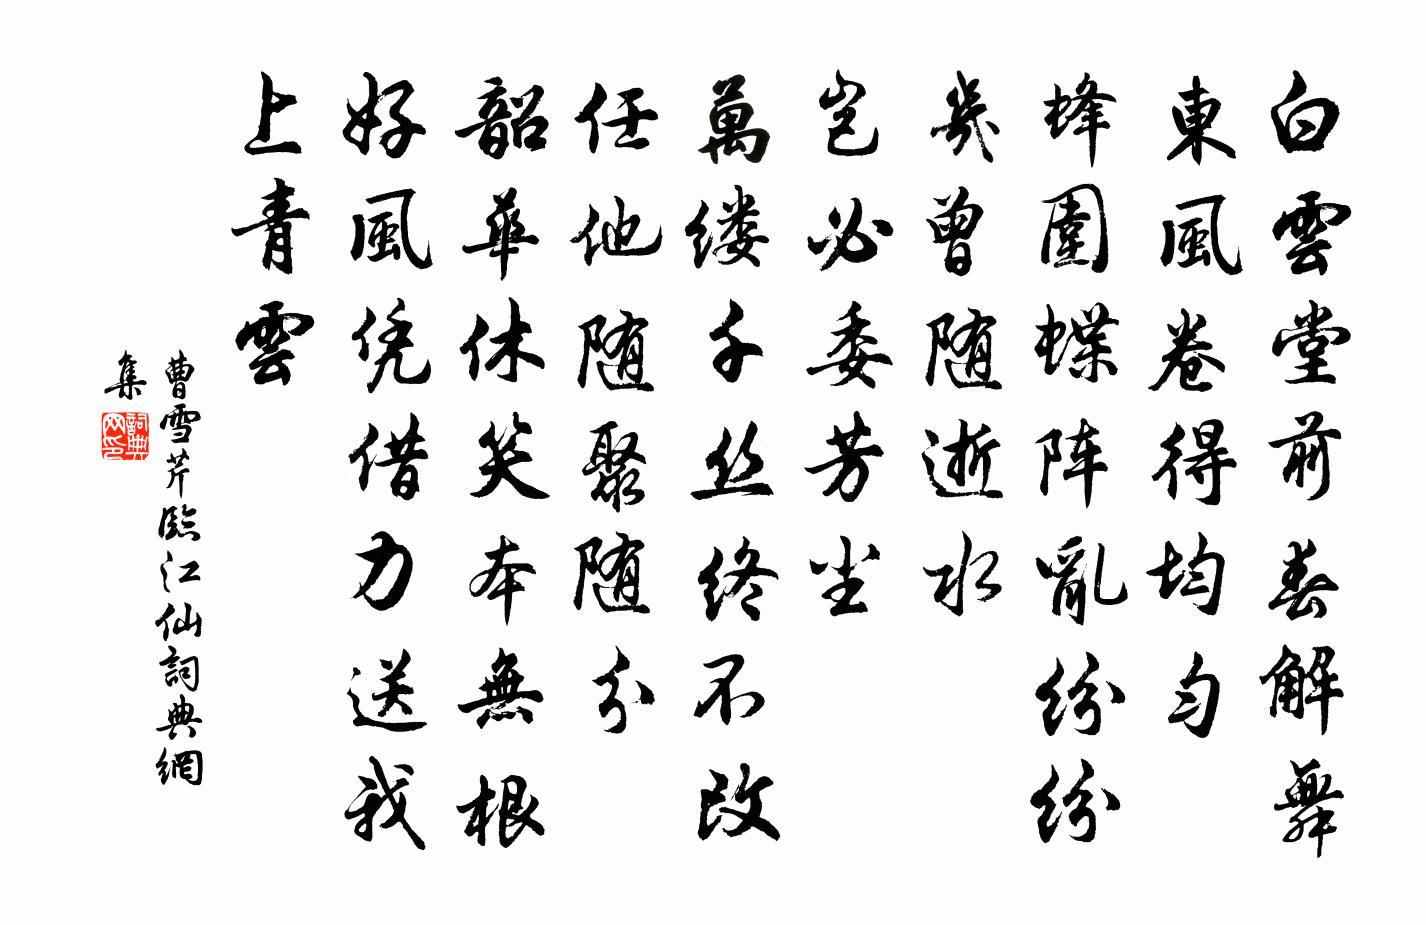 白雲堂前春解舞
東風卷得均勻
蜂圍蝶阵亂紛紛
幾曾随逝水
岂必委芳尘
萬缕千丝终不改
任他随聚随分
韶華休笑本無根
好風凭借力送我
上青雲
曹雪芹臨江仙詞典網
集
詞典
网印